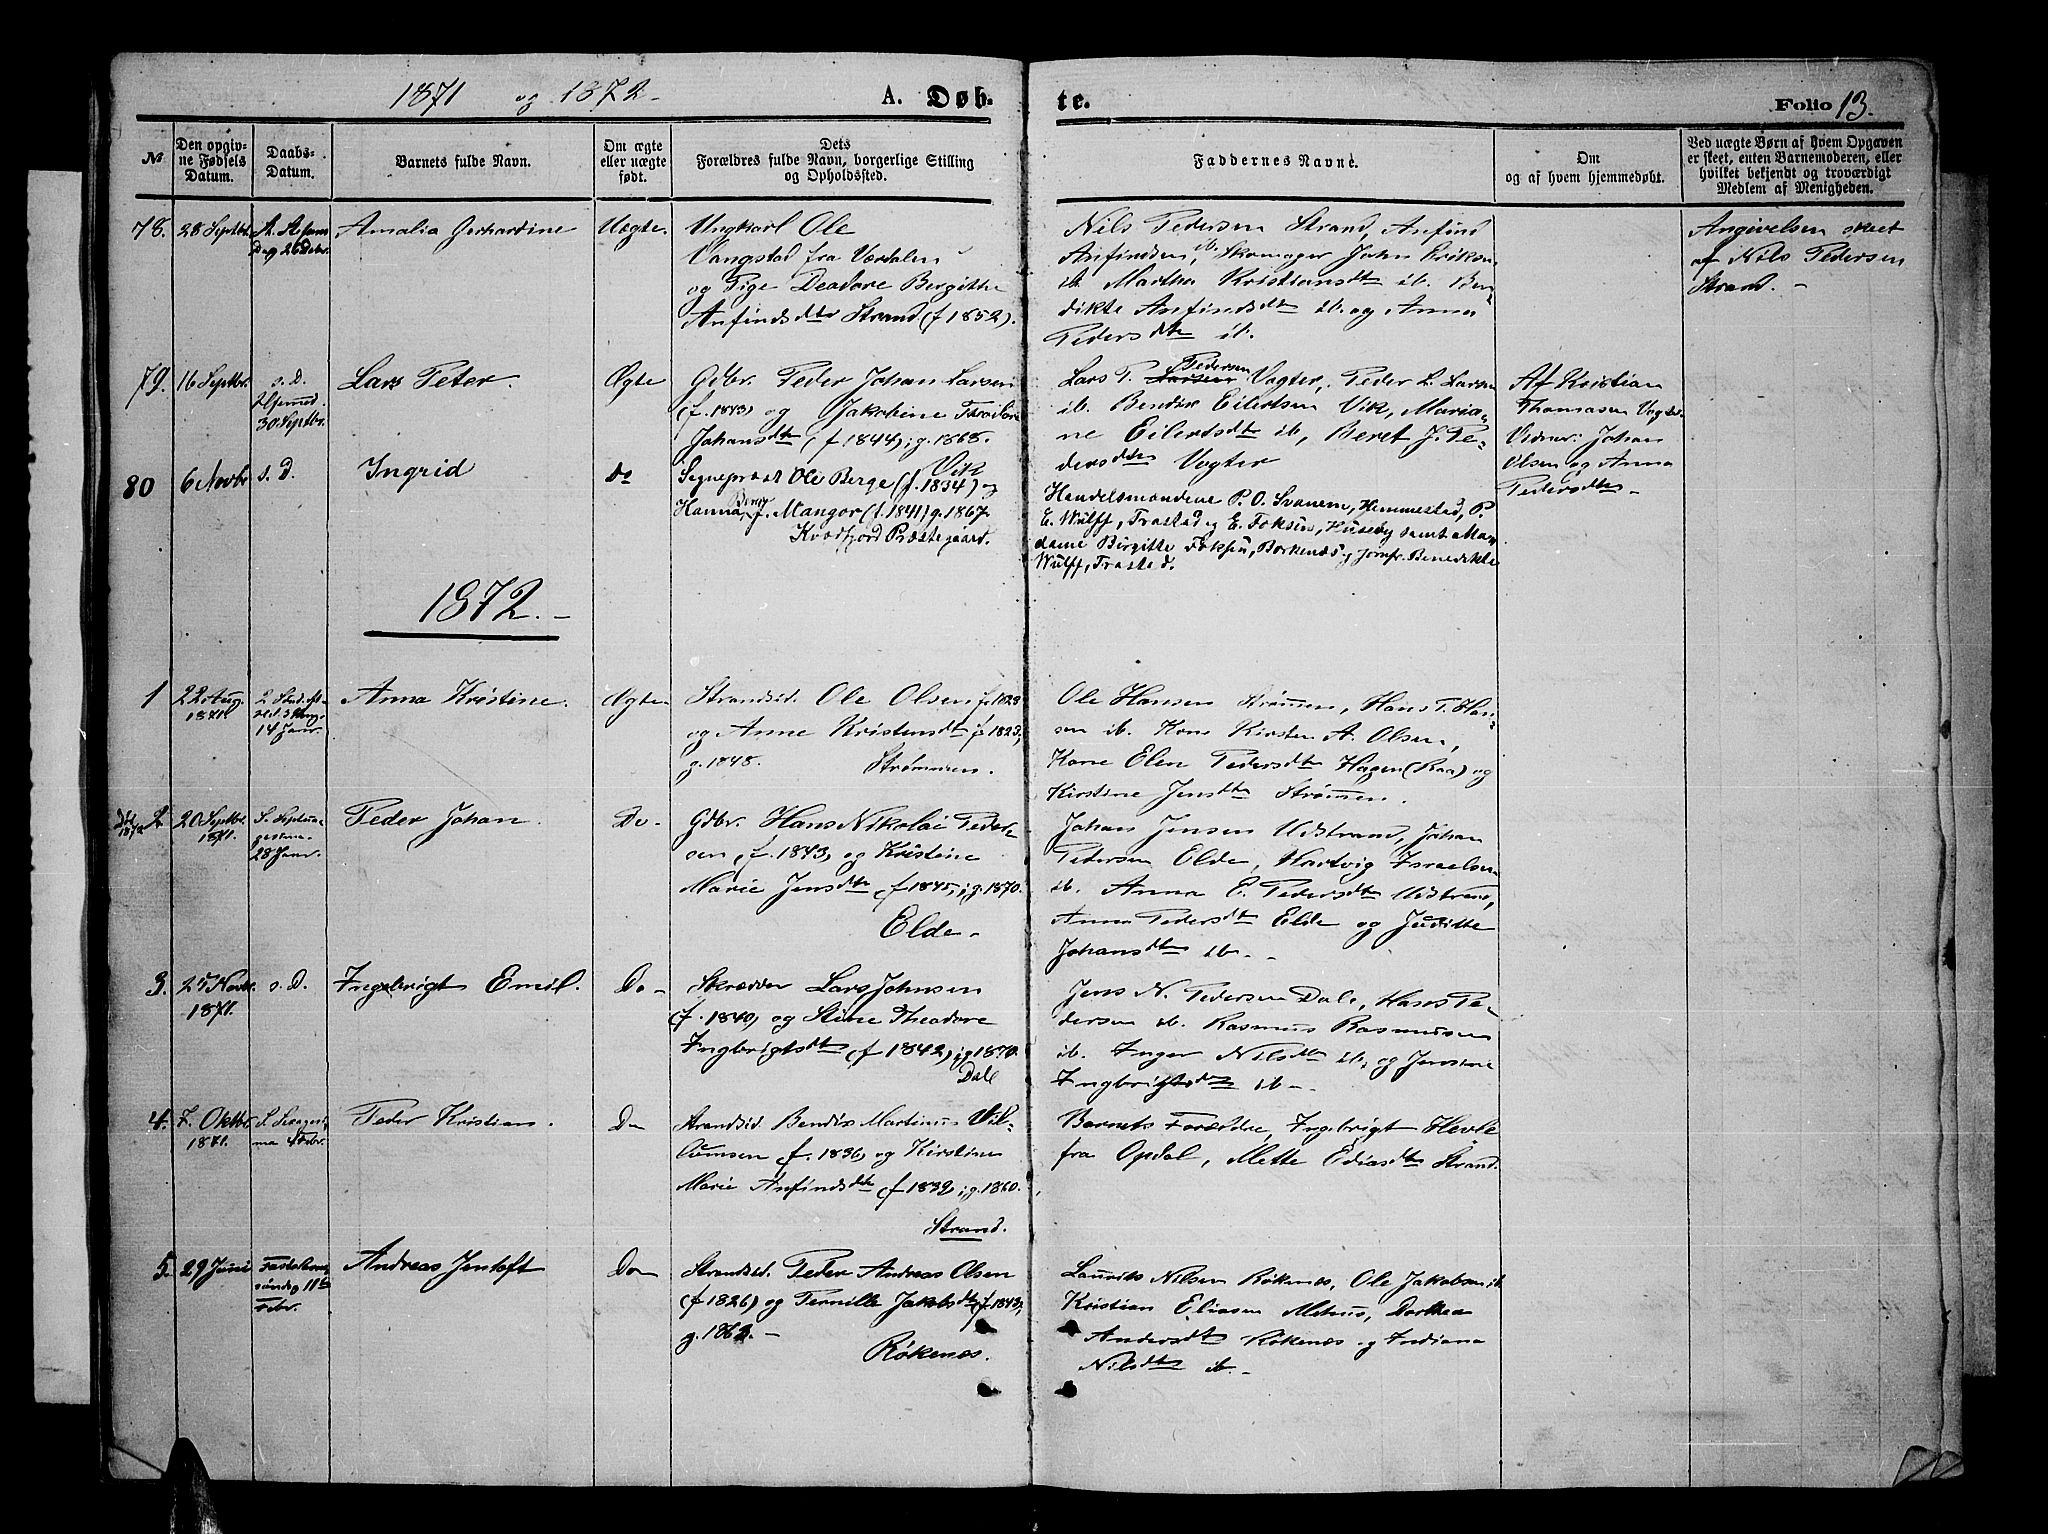 1871 og 1872 A. Døbte. Folio 13.
№
Den opgivne Fødsels Datum.
Daabs-Datum.
Barnets fulde Navn.
Om ægte eller uægte født.
Dets Forældres fulde Navn, borgerlige Stilling og Opholdssted.
Faddernes Navne.
Om og af hvem hjemmedøbt.
Ved uægte Børn af hvem Opgaven er skeet, enten Barnemoderen, eller hvilket bekjendt og troværdigt Medlem af Menigheden.
78. 28 Septbr.
Dag 26 Debr.
Amalia Gerhardine
Uægte.
Ungkarl Ole
Vangstad fra Værdalen
og Pige Deadore Bergitte
Anfindsdtr Strand (f 1852).
Nils Pedersen Strand, Anfind
Anfindsen ib., Skomager John Eriksen
ib. Martha Kristiansdtr ib. Ben-
dikte Anfindsdtr ib. og Anna
Pedersdtr ib.
Angivelsen skeet
af Nils Pedersen
Strand. -
79. 16 Septbr.
s. D.
Hjemmed.
30 Septbr.
Lars Peter.
Ægte
Gdbr. Peder Johan Larsen
(f. 1843) og Jakobine
Johansdtr (f 1844); g. 1868.
Vik
Lars P. Larsen Pedersen Vogter, Peder L. Larsen
ib. Bendix Eilertsen Vik, Maria-
ne Eilertsdtr ib, Beret J. Pe-
dersdtr Vogter
Af Kristian
Thomasen Vogter
Vidner: Johan
Olsen og Anna
Pedersdtr -
80 6 Novbr
s. D.
Ingrid
Do
Sognepræst Ole Berge (f. 1834) og
Hanna Berg f. Mangor (f. 1841) g. 1867.
Kvædfjord Præstegaard.
Handelsmændene P. O. Svanem, Hemmestad, P.
E. Wulff, Trastad og E. Foksen, Husseby samt Ma-
dame Birgitte Foksen, Borkenæs og Jomfr. Benedikte
Wulff, Trastad.
1872. -
1
22 Aug.
1871.
14 Janr.
Anna Kristine.
Ægte
Strandsid. Ole Olsen f. 1823
og Anne Kristensdtr f. 1823,
g. 1848. Strømmen.
Ole Hansen Strømmen, Hans P. Han-
sen ib. Kone Kirsten A. Olsen,
Kone Elen Pedersdtr Hagen (Raa) og
Kirstine Jensdtr Strømmen.
2. 20 Septbr
1871.
S. Septua-
gesima
28 Janr.
Peder Johan.
Do.
Gdbr. Hans Nikolai Peder-
sen (f. 1843) og Kristine
Marie Jensdtr (f 1845); g. 1870.
Elde -
Johan Jensen Udstrand, Johan
Pedersen Elde, Hartvig Israelsen
ib. Anna E. Pedersdtr Udstrand,
Anna Pedersdtr Elde og Juditte
Johansdtr ib. -
3. 25 Novbr.
1871.
s. D.
Ingebrigt Emil.
Do -
Skrædder Lars Johnsen
(f. 1840) og Stine Theadore
Ingbrigtsdtr (f 1842); g 1870.
Dale
Jens N. Pedersen Dale, Hans Pe-
dersen ib. Rasmus Rasmussen
ib. Inger Nilsdtr ib., og Jensine
Ingbrigtsdtr ib -
4. 7. Oktbr.
1871.
S. Sexagesi-
ma 4 Febr.
Peder Kristian.
Do
Strandsid. Bendix Martinus Vil-
lumsen (f. 1836) og Kirstine
Marie Anfindsdtr (f 1832); g. 1860.
Strand.
Barnets Forældre, Ingebrigt Hevle
fra Opdal, Mette Ediasdtr Strand.
5. 29 Juni
Fastelavns
søndag 11te
Febr.
Andreas Jentoft
Do
Strandsid. Peder Andreas Olsen
(f 1826) og Pernille Jakobsdtr (f. 1843),
g. 1863. -
Røkenæs.
Laurits Nilsen Røkenæs, Ole Jakobsen ib
Kristian Eliasen Melhus, Dorthea
Andersdtr Røkenæs og Indiana
Nilsdtr ib. -